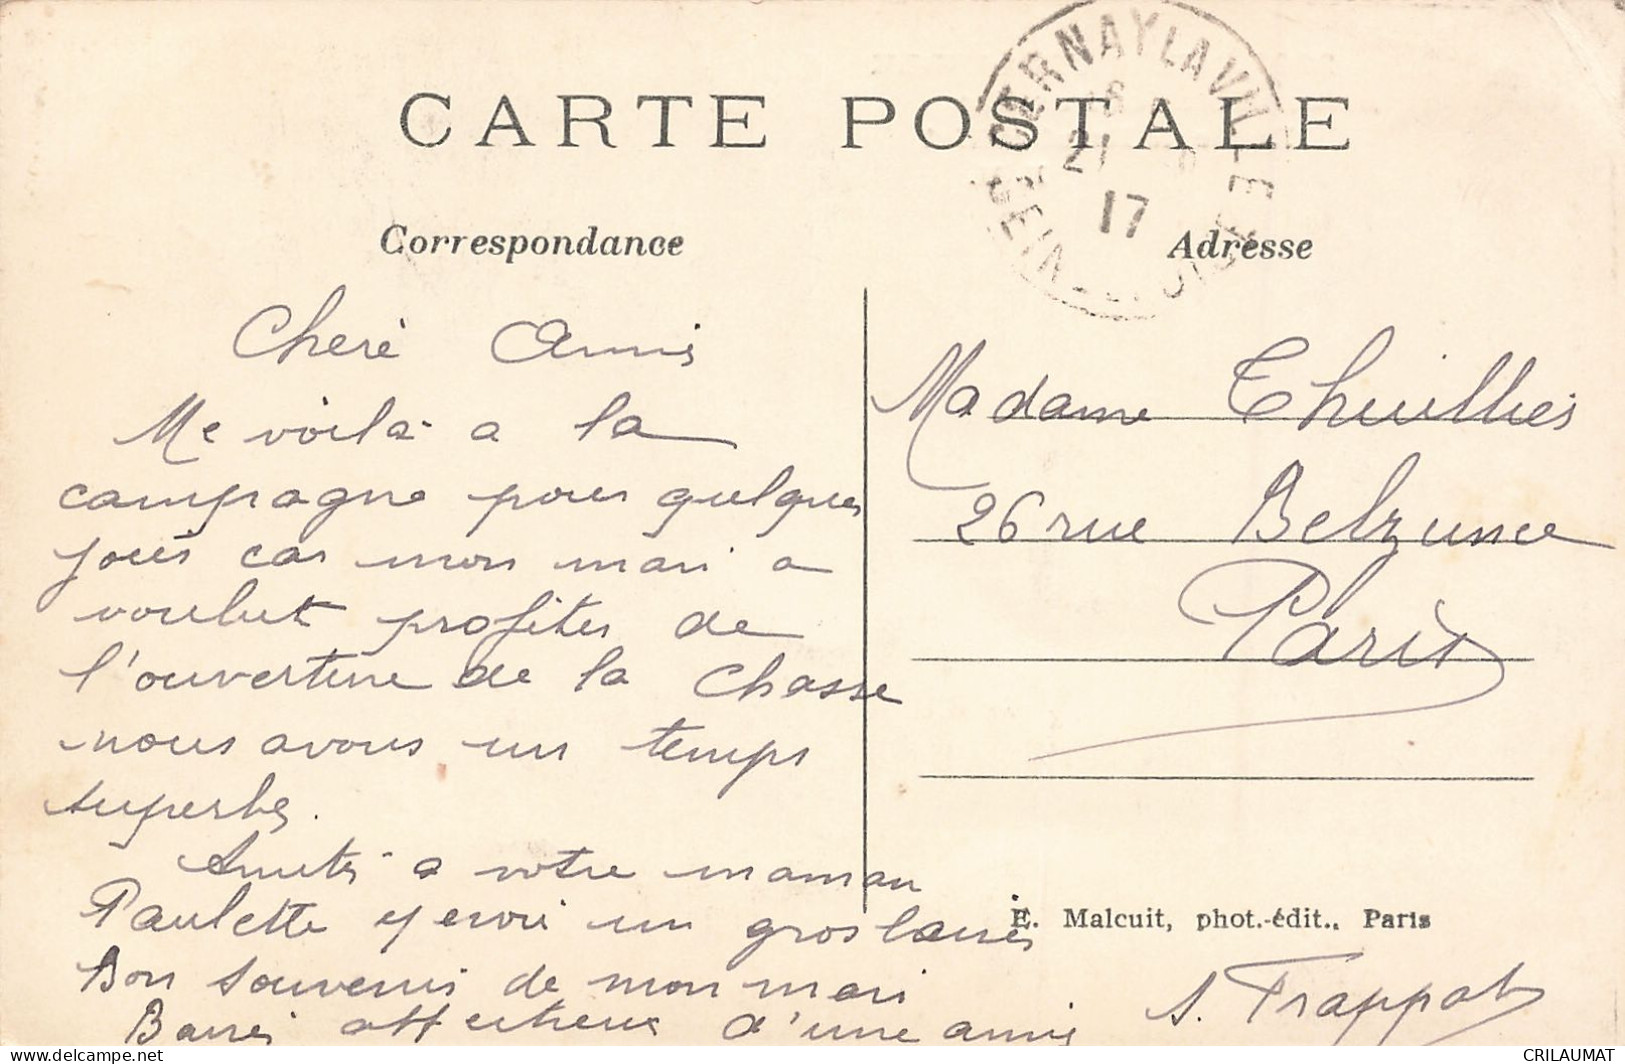 CARTE POSTALE
CERNAY LA VILLE
21
17
SEINE
Correspondance
Adresse
Cheré Amis
Me voila a la
campagne pour quelques
jours car mon mari a
voulut profiter de
l'ouverture de la Chasse
nous avons un temps
superbe.
Amitié a votre maman
Paulette
un gros baiser
Bon souvenir de mon mari
Baiser affectueux d'une amie
Madame Thuillier
26 rue Belzunce
Paris
E. Malcuit, phot.-édit., Paris
S. Frappat
delcampe.net
CRILAUMAT